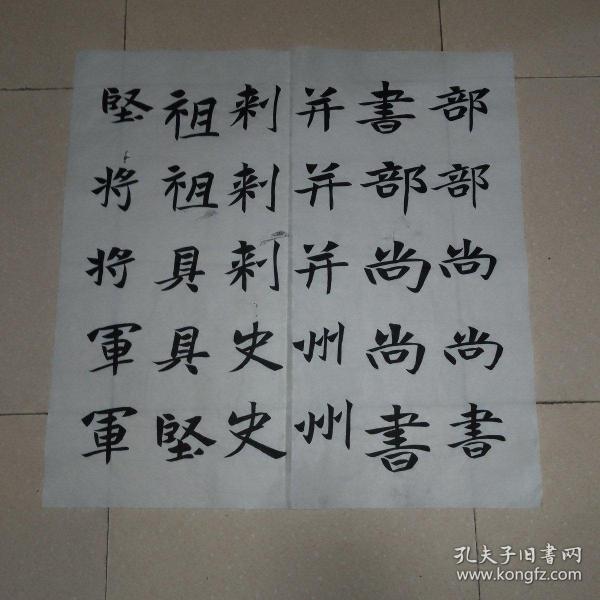 部部尚尚書
書部尚尚書
并并并州州
刺刺刺史史
祖祖具具堅
堅将将軍軍
孔夫子旧書网
www.kongfz.com